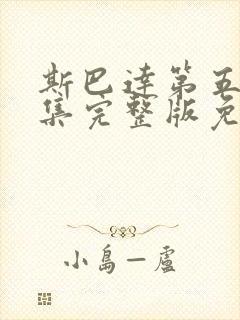 斯巴達第五
集完整版免
小島一盧